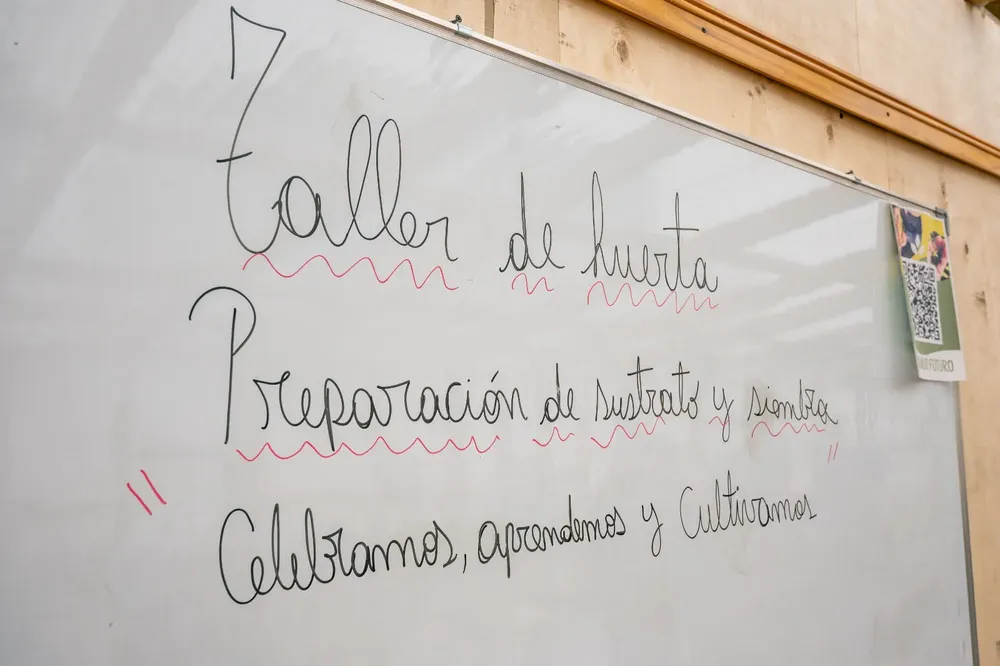 Taller de huerta
Preparación de sustrato y siembra
"Celebramos, aprendemos y Cultivamos"